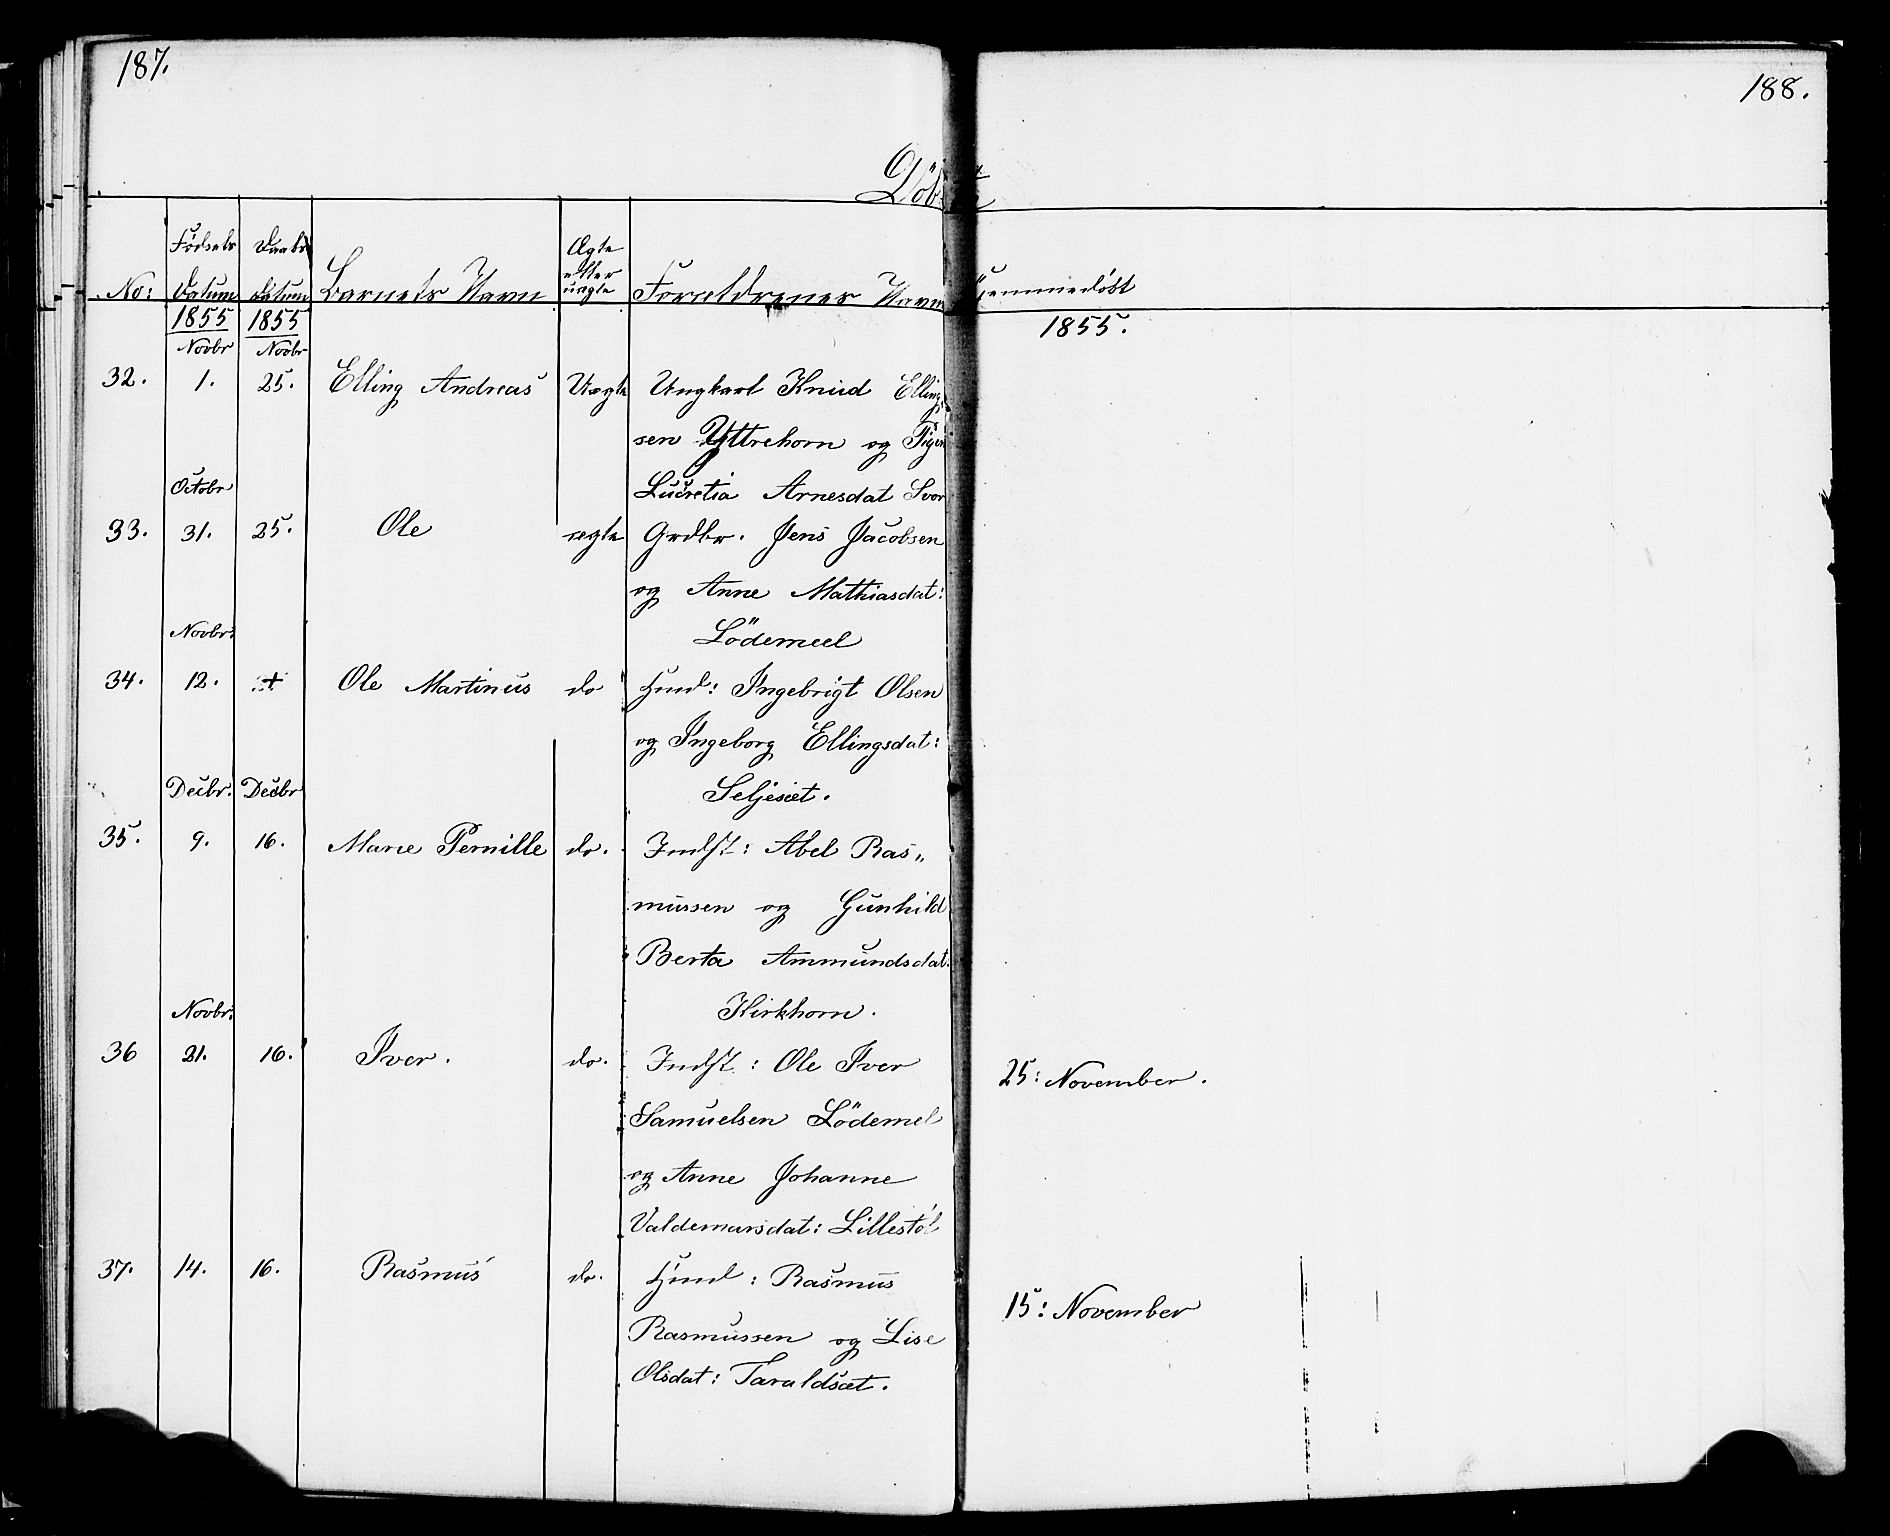 187.
188.
Döbte
No: Fødsels Datum Daabs datum Barnets Navn Ægte eller uægte Forældrenes Navn Hjemmedøbt
1855 1855 1855.
Novbr Novbr
32. 1. 25. Elling Andreas Uægte Ungkarl Knud Elling,
sen Yttrehorn og Pigen
Octobr Lucretia Arnesdat Svor
33. 31. 25. Ole ægte Grdbr. Jens Jacobsen
og Anne Mathiasdat:
Novbr: Lödemeel
34. 12. + Ole Martinus do Huusm: Ingebrigt Olsen
og Ingeborg Ellingsdat:
Decbr. Decbr Seljesæt.
35. 9. 16. Marie Pernille do. Indst: Abel Ras„
mussen og Gunhild
Berta Ammundsdat.
Novbr: Kirkhorn.
36 21. 16. Iver. do. Indst: Ole Iver 25: November.
Samuelsen Lödemel
og Anne Johanne
Valdemarsdat: Lillestøl
37. 14. 16. Rasmus do. Huusm: Rasmus 15: November
Rasmussen og Lise
Olsdat: Taraldsæt.